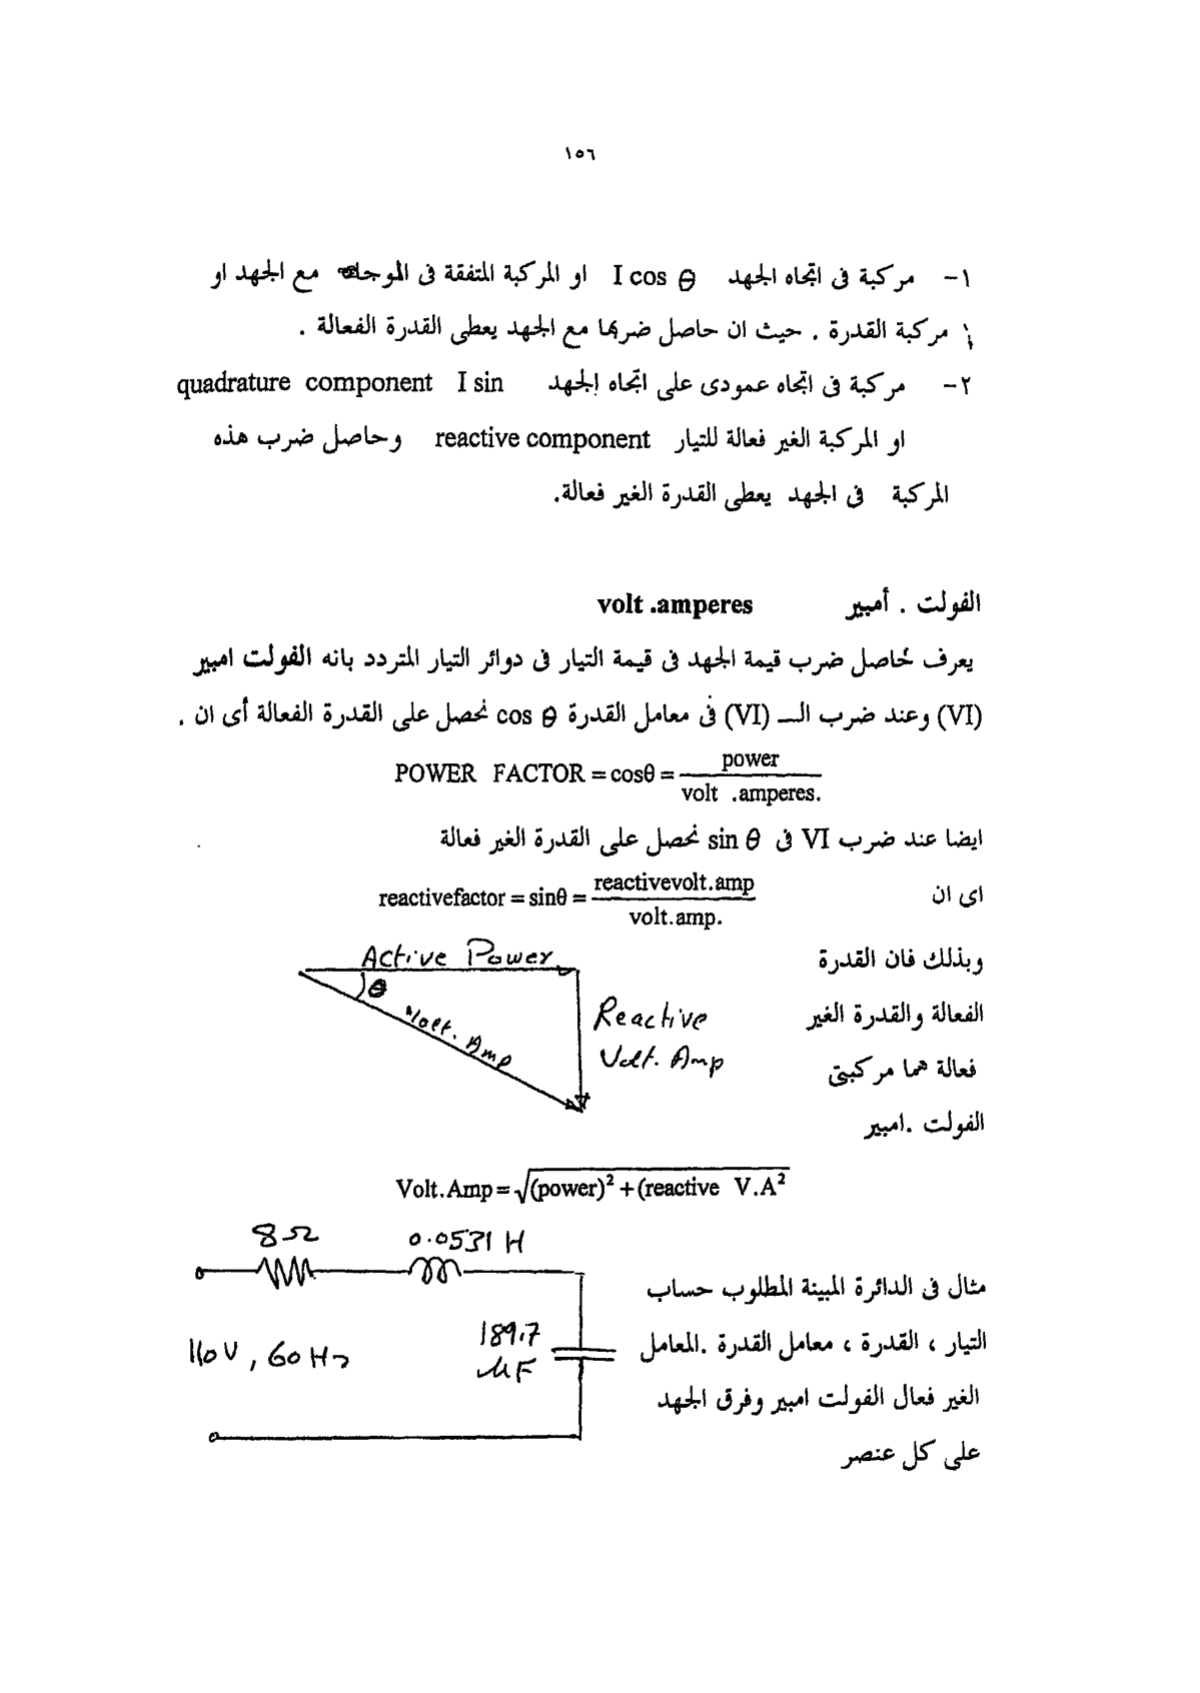 ١٥٦
١- مركبة فى اتجاه الجهد I cos θ او المركبة المتفقة فى الموجات مع الجهد او
مركبة القدرة . حيث ان حاصل ضربها مع الجهد يعطى القدرة الفعالة .
٢- مركبة فى اتجاه عمودى على اتجاه الجهد quadrature component I sin
او المركبة الغير فعالة للتيار reactive component وحاصل ضرب هذه
المركبة فى الجهد يعطى القدرة الغير فعالة.
الفولت . أمبير volt .amperes
يعرف حاصل ضرب قيمة الجهد فى قيمة التيار فى دوائر التيار المتردد بانه الفولت امبير
(VI) وعند ضرب الـ (VI) فى معامل القدرة cos θ نحصل على القدرة الفعالة أى ان .
POWER FACTOR = cosθ = power / volt .amperes.
ايضا عند ضرب VI فى sin θ نحصل على القدرة الغير فعالة
اى ان reactivefactor = sinθ = reactivevolt.amp / volt.amp.
وبذلك فان القدرة
الفعالة والقدرة الغير
فعالة هما مركبتى
الفولت .امبير
Active Power
θ
Volt. Amp
Reactive
Volt. Amp
Volt.Amp = √(power)² + (reactive V.A²
مثال فى الدائرة المبينة المطلوب حساب
التيار ، القدرة ، معامل القدرة .المعامل
الغير فعال الفولت امبير وفرق الجهد
على كل عنصر
8Ω
0.0531 H
189.7
μF
110V, 60Hz